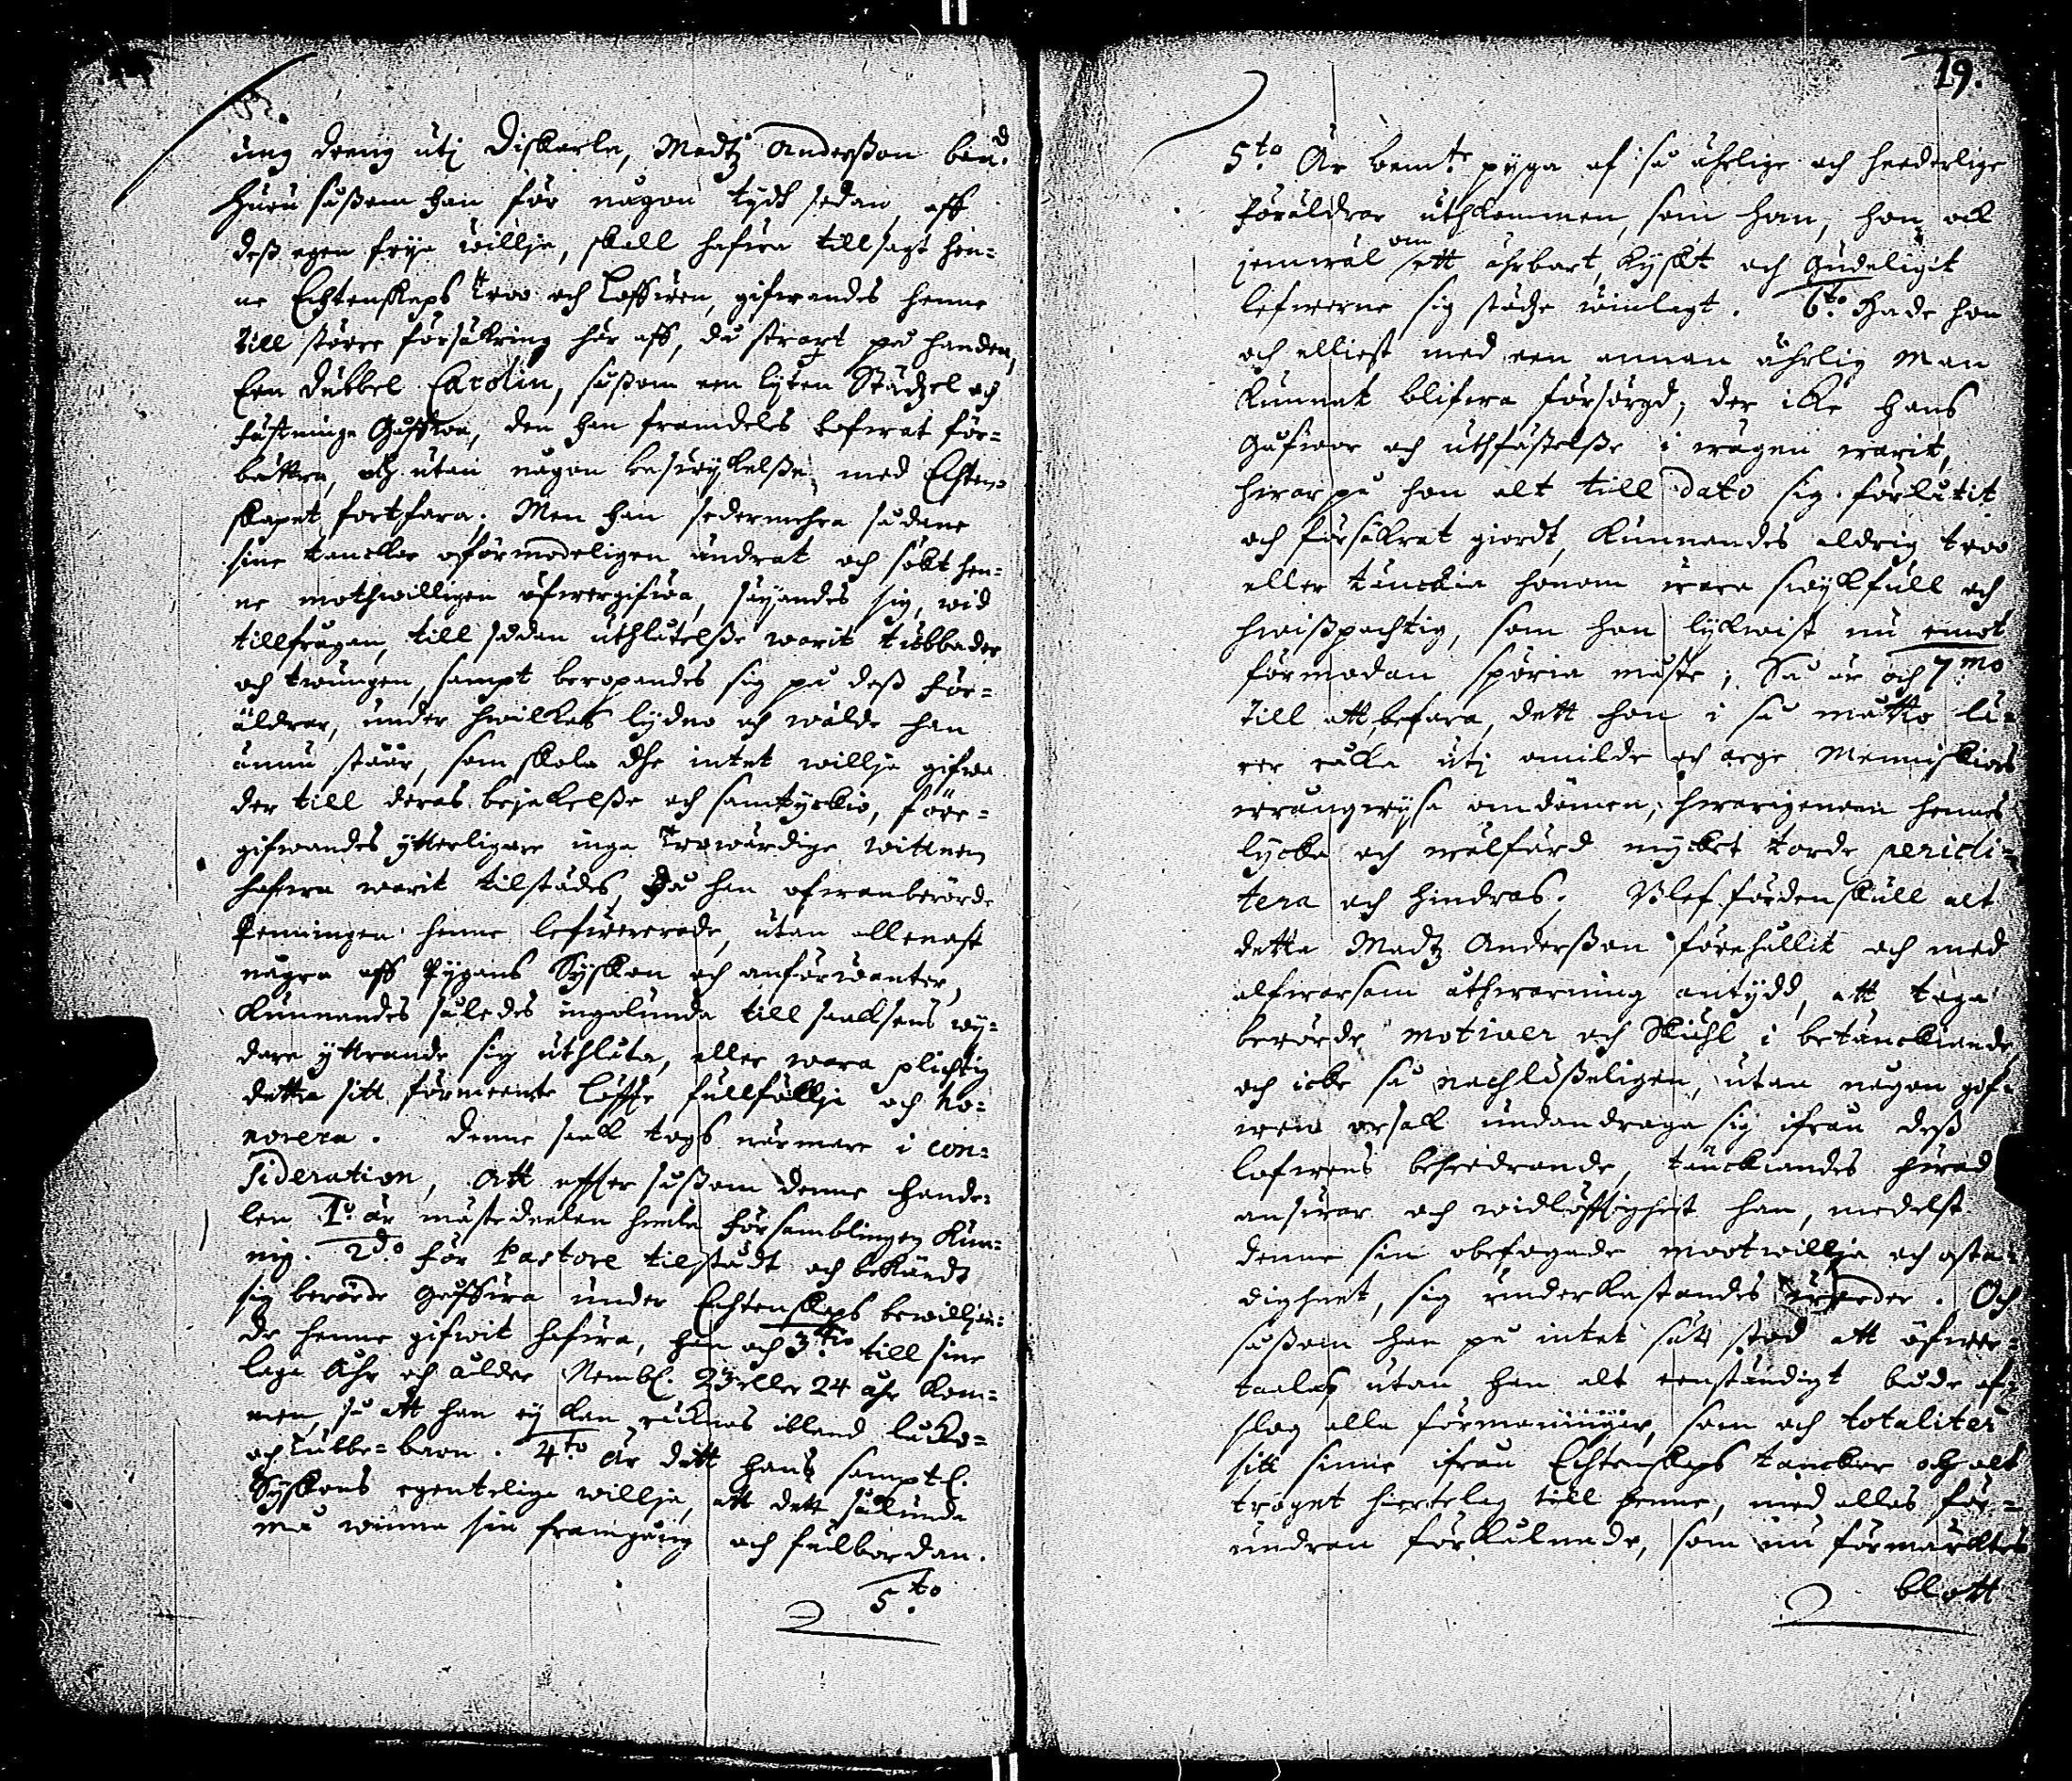 ung dräng uti Diskarla, Madtz Anderßon ben.d
Huru såßom han för någon tydh sedan, aff
deß egen frija willja, skall hafwa tillsagt hen-
ne Echtenskaps troo och Loffwen, gifwandes henne
till större försäkring här aff, då strart på handen,
Een dubbel Carolin, såßom een lyten Städzel och
fästninge Gåffwa, den han framdeles lofwat för-
bättra, och utan någon beswykelße med Echten-
skapet fortfara; Men han sedermehra sådane
sine tanckar oförmodeligen ändrat och sökt hen-
ne mothwilligen öfwergifwa, säyandes sig, wid
tillfrågan, till sådan uthlåtelße warit tubbader
och twungen, sampt beropandes sig på deß för-
äldrar, under hwilkas lydno och wälde han
ännu stäär, som skola dhe intet willja gifwa
der till deras bejakelße och samtyckio, före-
gifwandes ytterligare inga trowärdige wittnen
hafwa warit tilstädes, då han ofwanberörde
Penningen henne lefwererade, utan allenast
någre aff Pygans Syskon och anförwanter,
Kunnandes således ingalunda till saaksens wy-
dare yttrande sig uthlåta, eller wara plichtig
detta sitt förmeente Löffte fullföllja och ho-
norera. Denne saak togs närmare i con-
sideration, Att effter såßom denne Hande-
len 1.o är mästedeelen heela församblingen Kun-
nig. 2.do för Pastore tilstådt och bekändt
sig berörde Gåffwa under Echtenskaps bewilljan-
de henne gifwit hafwa, han och 3.tio till sine
laga Åhr och ålder Nembl. 23 eller 24 åhr kom-
men, så att han ey kan räknas ibland lacko-
och lubbe-barn. 4.to är dett hans samptl.
Syskons egentelige willja, att dett sålunda
må winna sin framgång och fullbordan.
5.to
19.
5.to Är bem.te pyga af så ährlige och heederlige
föräldrar uthkommen, som han, han ock
jemwäl om ett ährbart, kyskt och Gudeligit
lefwerne sig städze winlagt. 6.to Hade hon
och elliest med een annan ährlig Man
kunnat blifwa försörgd; der icke hans
Gåfwor och uthfästelße i wägen warit,
hwar på hon alt till dato sig förlåtit
och försäkrat giordt, kunnandes aldrig troo
eller tänckia honom wara swykfull och
som hon lykwist nu emot
förmodan spöria måste; Så är och 7.mo
till att befara, dett hon i så måtto lä-
rer råka uti omilde och arge Menniskiors
wrångwysa omdömen, hwarigenom hennes
lycka och wälfärd mycket torde pericli-
tera och hindras. Blef fördenskull alt
detta Madtz Anderßon förehållit och med
alfwarsam åthwarning antydd, att taga
berörde motiver och Skiähl i betänckiande
och icke så nachläßeligen, utan någon gif-
wen orsak undandraga sig ifrån deß
lofwens beheedrande, tänckiandes hwad
answar och widlöfftighet han, medelst
denne sin obefogade mootwillja och osta-
dighet, sig underkastandes warder. Och
såßom han på intet sätt stod att öfwer-
taalas utan han alt eenständigt både af-
slog alla förmaningar, som och totaliter
sitt sinne ifrån Echtenskaps tanckar och alt
trogit hiertelag till henne, med allas för-
undran förkålnade, som nu förmärktes
blott